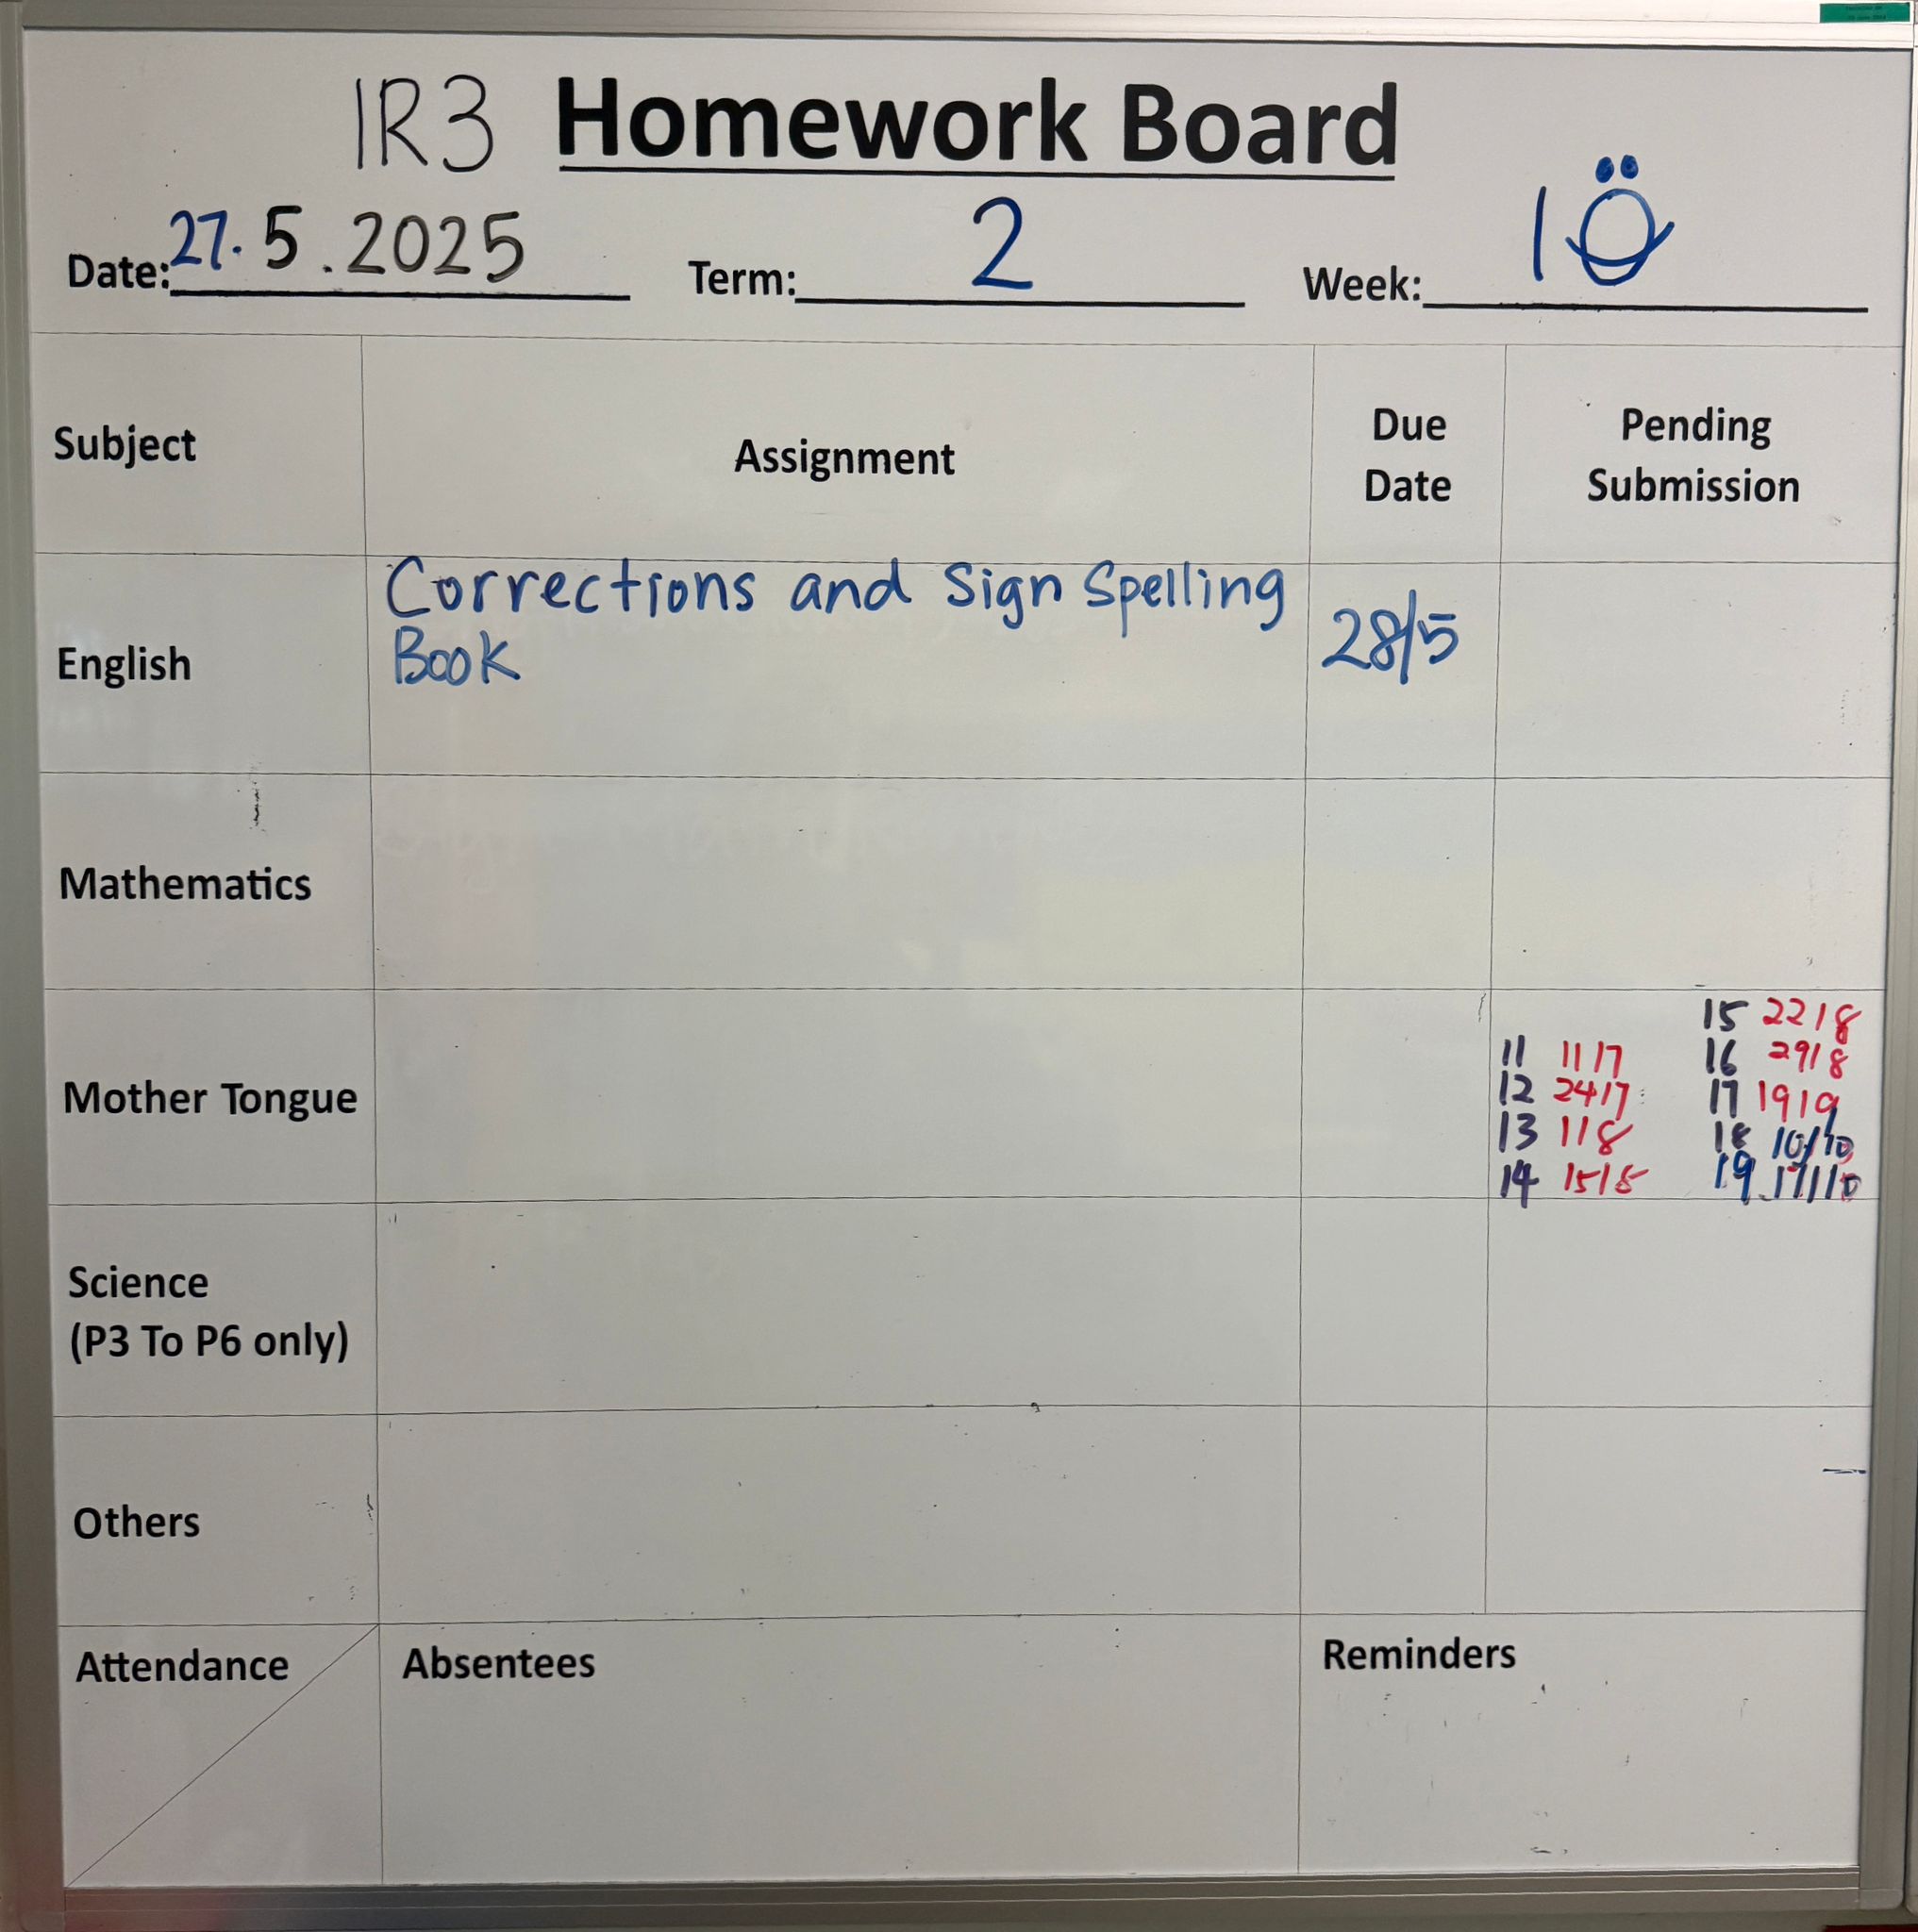 1R3 Homework Board
Date: 27.5.2025 Term: 2 Week: 10
Subject Assignment Due Date Pending Submission
English Corrections and Sign Spelling Book 28/5
Mathematics
Mother Tongue
11 11/7
12 24/7
13 1/8
14 15/8
15 22/8
16 29/8
17 19/9
18 10/10
19 17/10
Science
(P3 To P6 only)
Others
Attendance Absentees Reminders